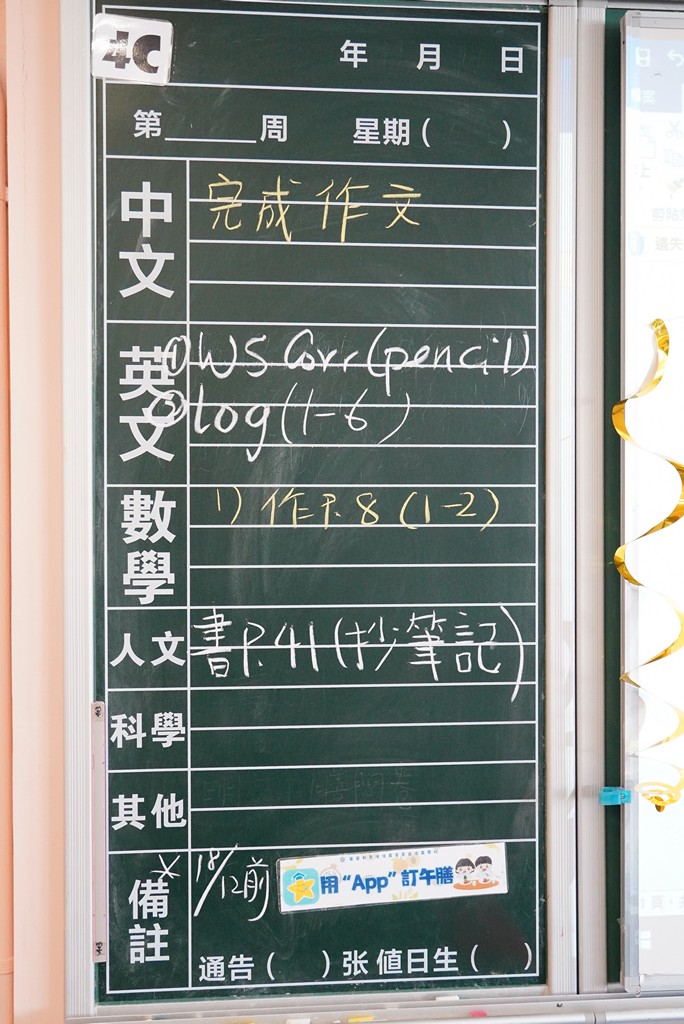 4C
年 月 日
第______周 星期( )
中文
完成作文
英文
①WS Corr(pencil)
②log(1-6)
數學
1) 作P.8 (1-2)
人文
書P.41(抄筆記)
科學
其他
備註
*18/12前
用“App”訂午膳
通告( )张 值日生( )